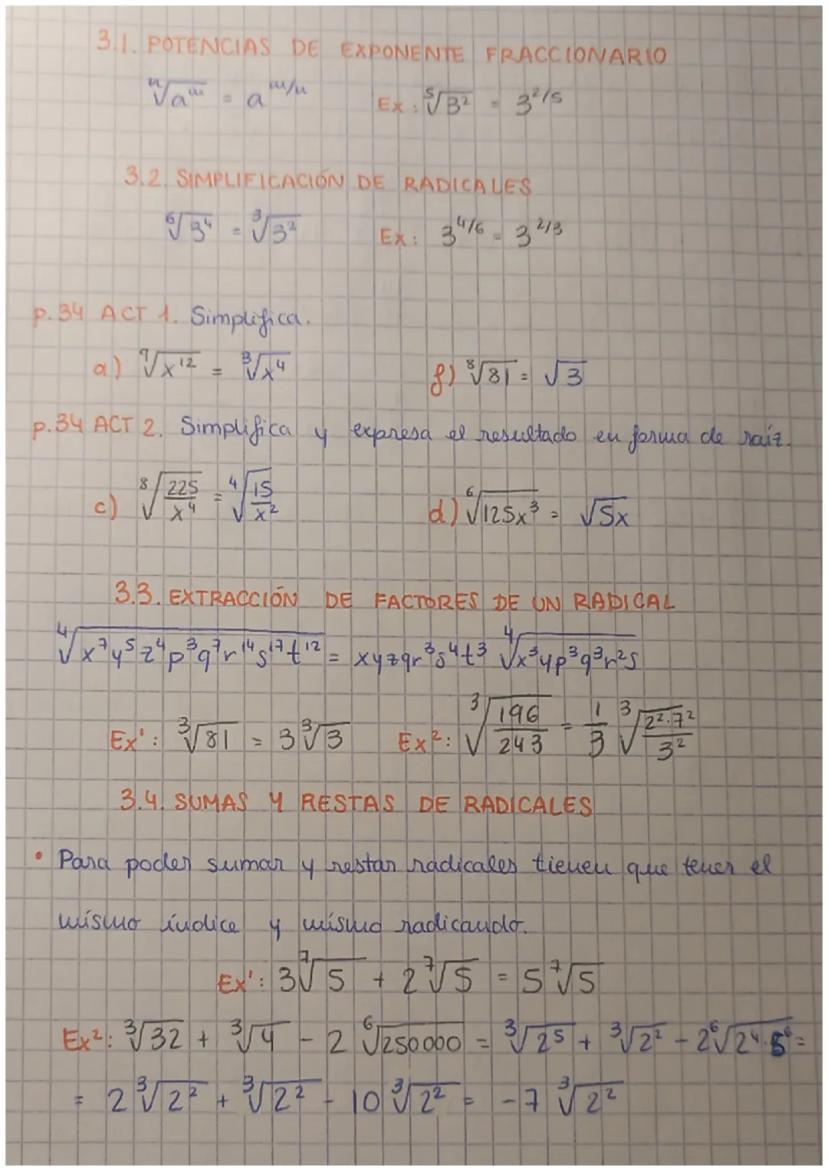 3.1. POTENCIAS DE EXPONENTE FRACCIONARIO
ⁿ√aᵐ = a^m/n   Ex: ⁵√3² = 3^2/5
3.2. SIMPLIFICACIÓN DE RADICALES
⁶√3⁴ = ³√3²   Ex: 3^4/6 = 3^2/3
p.34 ACT 1. Simplifica.
a) ⁹√x¹² = ³√x⁴   f) ⁸√81 = √3
p.34 ACT 2. Simplifica y expresa el resultado en forma de raíz.
c) ⁸√(225/x⁴) = ⁴√(15/x²)   d) ⁶√125x³ = √5x
3.3. EXTRACCIÓN DE FACTORES DE UN RADICAL
⁴√x⁷y⁵z⁴p³q⁷r¹⁴s¹⁷t¹² = xyzqr³s⁴t³ ⁴√x³yp³q³r²s
Ex¹: ³√81 = 3³√3   Ex²: ³√(196/243) = 1/3 ³√(2²·7²/3²)
3.4. SUMAS Y RESTAS DE RADICALES
• Para poder sumar y restar radicales tienen que tener el
mismo índice y mismo radicando.
Ex¹: 3⁷√5 + 2⁷√5 = 5⁷√5
Ex²: ³√32 + ³√4 - 2 ⁶√250000 = ³√2⁵ + ³√2² - 2⁶√2⁴·5⁶ =
= 2³√2² + ³√2² - 10³√2² = -7 ³√2²